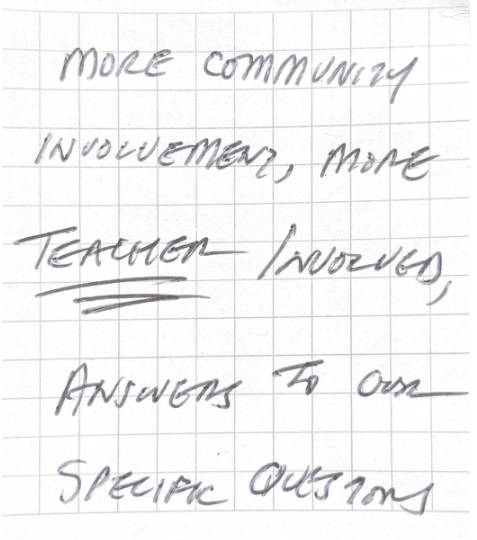 MORE COMMUNITY
INVOLVEMENT, MORE
TEACHER INVOLVED,
ANSWERS TO OUR
SPECIFIC QUESTIONS